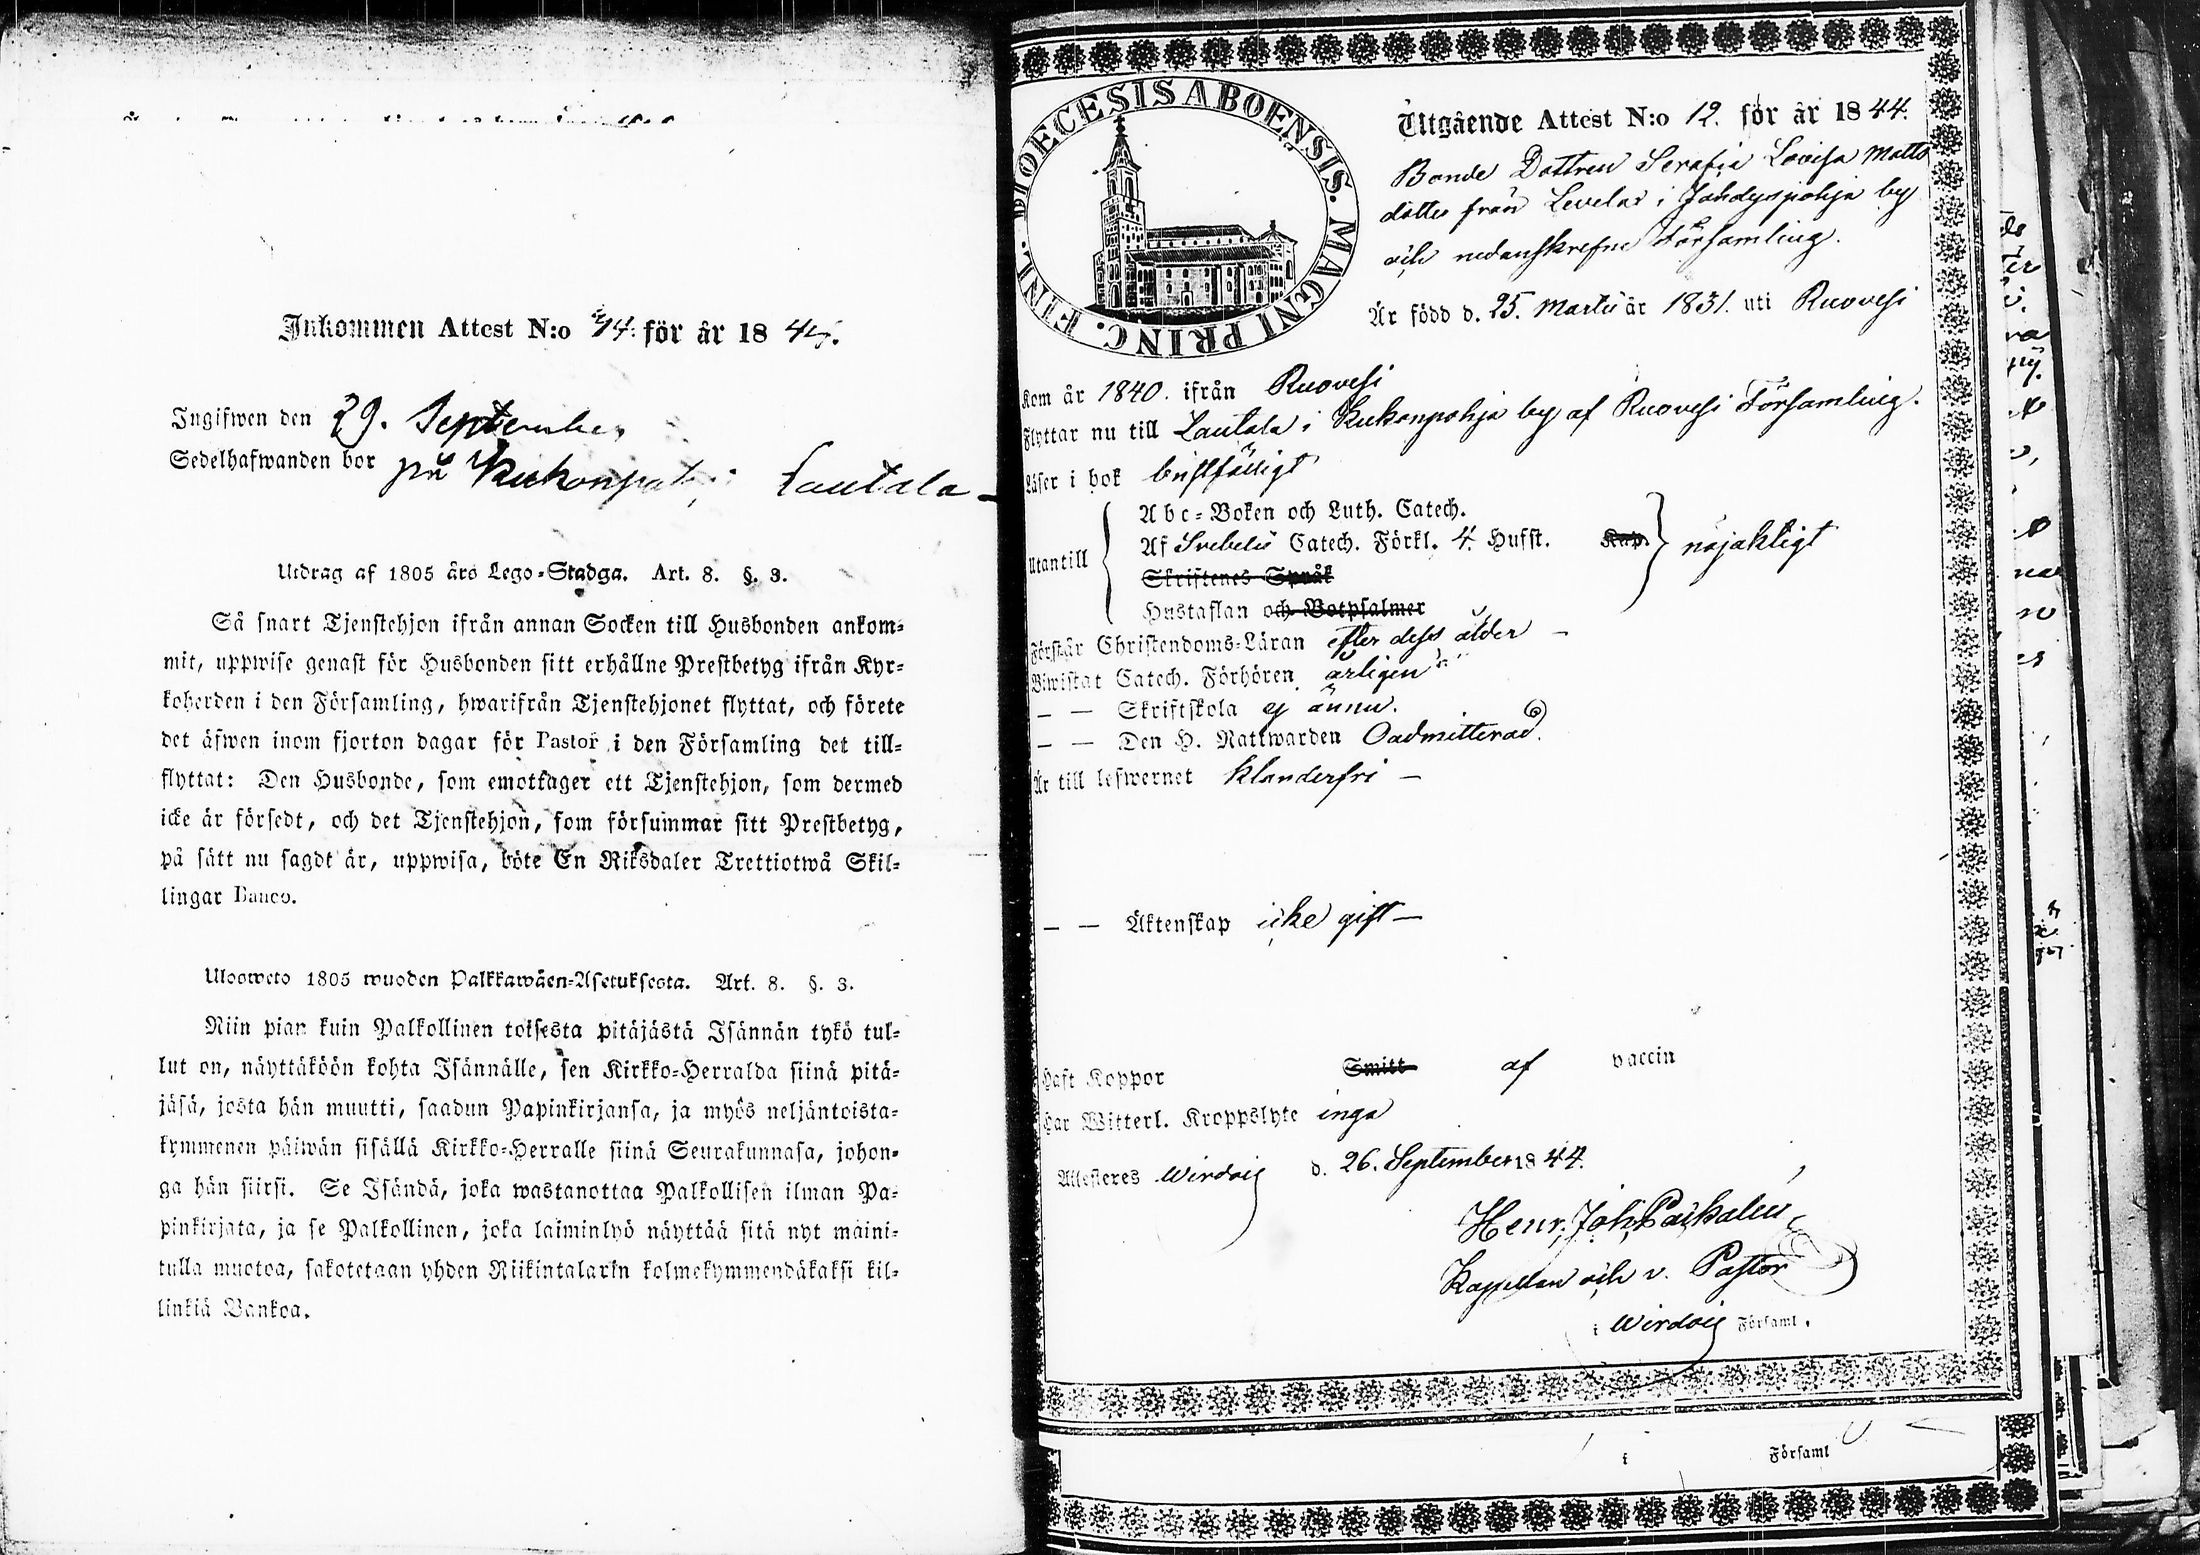 Inkommen Attest N:o 14. för år 1844.
Ingifwen den 29. September
Sedelhafwanden bor på Kukonpohj: Lautala
Utdrag af 1805 års Lego-Stadga. Art. 8. §. 3.
Så snart Tjenstehjon ifrån annan Socken till Husbonden ankom-
mit, uppwise genast för Husbonden sitt erhållne Prestbetyg ifrån Kyr-
koherden i den Församling, hwarifrån Tjenstehjonet flyttat, och förete
det äfwen inom fjorton dagar för Pastor i den Församling det till-
flyttat: Den Husbonde, som emottager ett Tjenstehjon, som dermed
icke är försedt, och det Tjenstehjon, som försummar sitt Prestbetyg,
på sätt nu sagdt är, uppwisa, böte En Riksdaler Trettiotwå Skil-
lingar Banco.
Ulosweto 1805 wuoden Palkkawäen-Asetuksesta. Art. 8. §. 3.
Niin pian kuin Palkollinen toisesta pitäjästä Isännän tykö tul-
lut on, näyttäköön kohta Isännälle, sen Kirkko-Herralda siinä pitä-
jäsä, josta hän muutti, saadun Papinkirjansa, ja myös neljäntoista-
kymmenen päiwän sisällä Kirkko-Herralle siinä Seurakunnasa, johon-
ga hän siirsi. Se Isändä, joka wastanottaa Palkollisen ilman Pa-
pinkirjata, ja se Palkollinen, joka laiminlyö näyttää sitä nyt maini-
tulla muotoa, sakotetaan yhden Riikintalarin kolmekymmendäkaksi kil-
linkiä Bankoa.
DIOECESIS ABOENSIS. MAGNI PRINC. FINL.
Utgående Attest N:o 12. för år 1844.
Bonde Dottren Serafia Lovisa Matts
dotter från Levelax i Jähdyspohja by
och nedanskrefne Församling.
Är född d. 25. Martii år 1831. uti Ruovesi
Kom år 1840. ifrån Ruovesi
Flyttar nu till Lautala i Kukonpohja by af Ruovesi Församling.
Läser i bok bristfälligt
Utantill
Abc-Boken och Luth. Catech.
Af Svebelii Catech. Förkl. 4. Hufst. Kap. nöjaktigt
Skriftenes Språk
Hustaflan och Botpsalmer
Förstår Christendoms-Läran efter dess ålder –
Biwistat Catech. Förhören årligen
– – Skriftskola ej ännu.
– – Den H. Nattwarden Oadmitterad.
Är till lefwernet klanderfri –
– – Äktenskap icke gift –
Haft Koppor Smitt af vaccin
Har Witterl. Kroppslyte inga
Attesteres Wirdois d. 26. September 1844.
Henr. Joh. Paskalin
Kapellan och v. Pastor
i Wirdois Församl.
i Församl